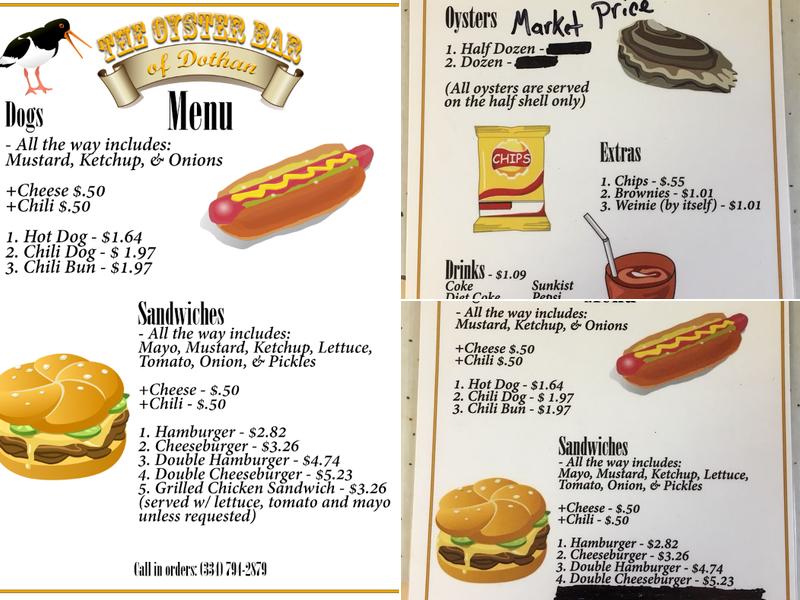 THE OYSTER BAR
of Dothan
Menu
Dogs
- All the way includes:
Mustard, Ketchup, & Onions
+Cheese $.50
+Chili $.50
1. Hot Dog - $1.64
2. Chili Dog - $ 1.97
3. Chili Bun - $1.97
Sandwiches
- All the way includes:
Mayo, Mustard, Ketchup, Lettuce,
Tomato, Onion, & Pickles
+Cheese - $.50
+Chili - $.50
1. Hamburger - $2.82
2. Cheeseburger - $3.26
3. Double Hamburger - $4.74
4. Double Cheeseburger - $5.23
5. Grilled Chicken Sandwich - $3.26
(served w/ lettuce, tomato and mayo
unless requested)
Call in orders: (334) 794-2879
Oysters Market Price
1. Half Dozen -
2. Dozen -
(All oysters are served
on the half shell only)
CHIPS
Extras
1. Chips - $.55
2. Brownies - $1.01
3. Weinie (by itself) - $1.01
Drinks - $1.09
Coke Sunkist
Diet Coke Pepsi
- All the way includes:
Mustard, Ketchup, & Onions
+Cheese $.50
+Chili $.50
1. Hot Dog - $1.64
2. Chili Dog - $ 1.97
3. Chili Bun - $1.97
Sandwiches
- All the way includes:
Mayo, Mustard, Ketchup, Lettuce,
Tomato, Onion, & Pickles
+Cheese - $.50
+Chili - $.50
1. Hamburger - $2.82
2. Cheeseburger - $3.26
3. Double Hamburger - $4.74
4. Double Cheeseburger - $5.23